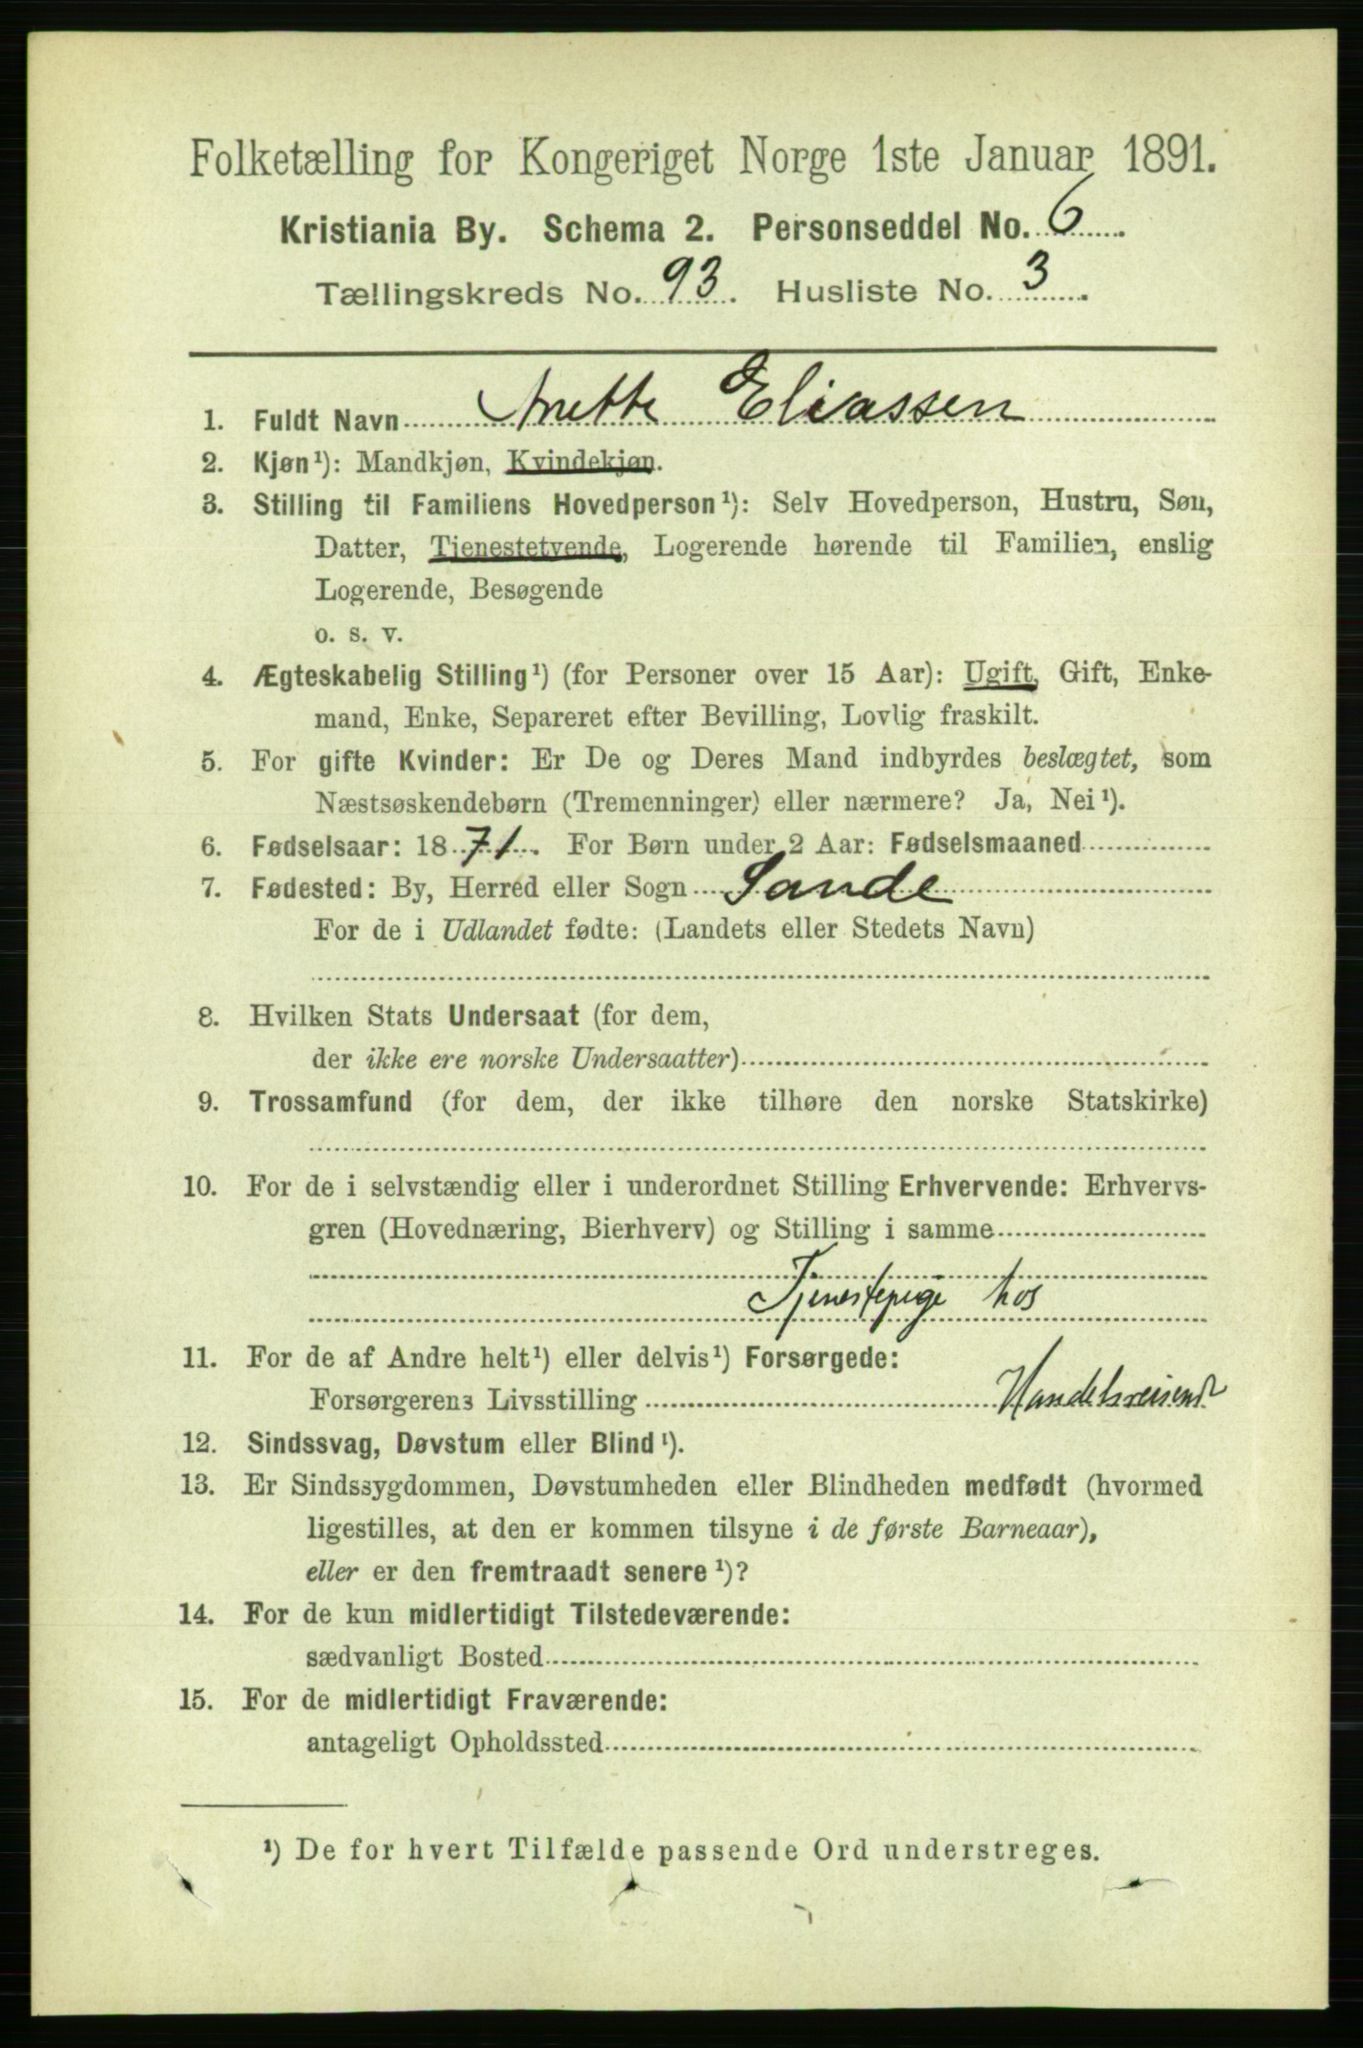 Folketælling for Kongeriget Norge 1ste Januar 1891.
Kristiania By. Schema 2. Personseddel No. 6
Tællingskreds No. 93. Husliste No. 3
1. Fuldt Navn Anette Eliassen
2. Kjøn¹): Mandkjøn, Kvindekjøn.
3. Stilling til Familiens Hovedperson¹): Selv Hovedperson, Hustru, Søn,
Datter, Tjenestetyende, Logerende hørende til Familien, enslig
Logerende, Besøgende
o. s. v.
4. Ægteskabelig Stilling¹) (for Personer over 15 Aar): Ugift, Gift, Enke-
mand, Enke, Separeret efter Bevilling, Lovlig fraskilt.
5. For gifte Kvinder: Er De og Deres Mand indbyrdes beslægtet, som
Næstsøskendebørn (Tremenninger) eller nærmere? Ja, Nei¹).
6. Fødselsaar: 1871. For Børn under 2 Aar: Fødselsmaaned
7. Fødested: By, Herred eller Sogn Sande
For de i Udlandet fødte: (Landets eller Stedets Navn)
8. Hvilken Stats Undersaat (for dem,
der ikke ere norske Undersaatter)
9. Trossamfund (for dem, der ikke tilhøre den norske Statskirke)
10. For de i selvstændig eller i underordnet Stilling Erhvervende: Erhvervs-
gren (Hovednæring, Bierhverv) og Stilling i samme
Tjenestepige hos
11. For de af Andre helt¹) eller delvis¹) Forsørgede:
Forsørgerens Livsstilling Handelsreisende
12. Sindssvag, Døvstum eller Blind¹).
13. Er Sindssygdommen, Døvstumheden eller Blindheden medfødt (hvormed
ligestilles, at den er kommen tilsyne i de første Barneaar),
eller er den fremtraadt senere¹)?
14. For de kun midlertidigt Tilstedeværende:
sædvanligt Bosted
15. For de midlertidigt Fraværende:
antageligt Opholdssted
¹) De for hvert Tilfælde passende Ord understreges.